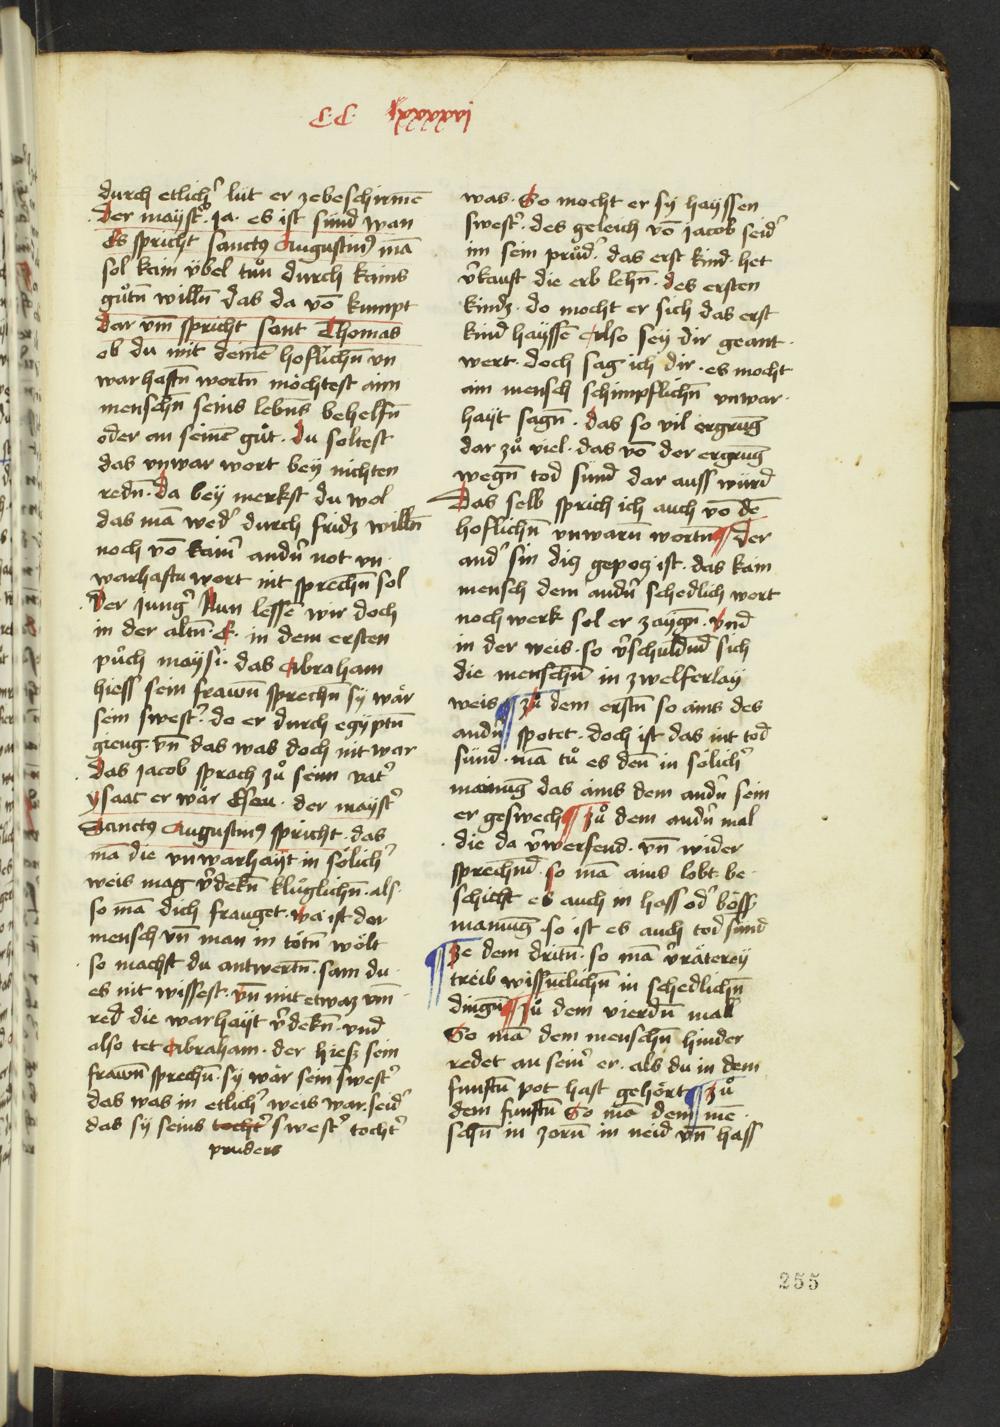 C.C. lxxxxvi
durch etlich̕ lüt er zebeschirmē
Der mayst̕. Ja. es ist sünd wan
Es spricht sanctꝰ Augustinꝰ mā
sol kain v̈bel tůn durch kains
gůtn̄ willn̄ das da vō kumpt
dar vm̄ spricht sant Thomas
ob du mit deinē hoflichn̄ vn
warhaftn̄ wortn̄ möchtest aim
menschn̄ seins lebn̄s behelfn̄
oder an seinē gůt. du soltest
das vnwar wort bey nichten
redn̄. Da bey merkst du wol
das mā wed̕ durch fridz willn̄
noch vō kain̕ andn̄ not vn
warhaftu wort nit sprechn̄ sol
Der Jung̕ Nun lessē wir doch
in der altn̄. E. in dem ersten
půch maysi. das Abraham
hiess sein frawn̄ sprechn̄ sy wär
sein swest̕. do er durch egyptn̄
gieng. vn̄ das was doch nit war
das Jacob sprach zů seim vat̕
ysaac er wär Esau. der mayst̕
Sanctꝰ Augustinꝰ spricht. das
mā die vnwarhayt in sölich̕
weis mag v̕dekn̄ klůglichn̄. als
so mā dich frauget. wa ist der
mensch vn̄ man in tötn̄ wölt
so machst du antwertn̄. sam du
es nit wissest. vn̄ mit etwaz vm̄
red die warhayt v̕dekn̄. vnd
also tet Abraham. der hiess sein
frawn̄ sprechn̄. sy wär sein swest̕
das was in etlich̕ weis war. seid̕
das sy seins tocht̕ swest̕ tocht̕
pruders
was. So mocht er sy hayssen
swest̕. des geleich vō Jacob seid̕
im sein průd̕. das erst kind. het
v̕kauft die erb lehn̄. des ersten
kindz. do mocht er sich das erst
kind hayssē Also sey dir geant
wert. doch sag ich dir. es mocht
ain mensch schimpflichn̄ vnwar
hayt sagn̄. das so vil ergrūg
dar zů viel. das vō der ergrūg
wegn̄ tod sünd dar auss würd
Das selb sprich ich auch vō dē
hoflichn̄ vnwarn̄ wortn̄ ¶ Der
and̕ sin diß gepoz ist. das kain
mensch dem andn̄ schedlich wort
noch werk sol er zaygn̄. vnd
in der weis. so v̕schuldnd sich
die menschn̄ in zwelferlay
weis ¶ Zů dem erstn̄ so ains des
andn̄ spotet. doch ist das nit tod
sünd. mā tů es den̄ in sölich̕
mainūg das ains dem andn̄ sein
er geswech ¶ Zů dem andn̄ mal
die da v̕werfend. vn̄ wider
sprechnd. so mā ains lobt. be
schicht es auch in hass od̕ böss̕
mainūg. so ist es auch tod sünd
¶ Ze dem dritn̄. so mā v̕räterey
treib wissnclichn̄ in schedlichn̄
dingn̄ ¶ Zů dem vierdn̄ mal
So mā dem menschn̄ hinder
redet an sein̕ er. als du in dem
funftn̄ pot hast gehört ¶ Zů
dem funftn̄ So mā dem mē
schn̄ in zorn̄ in neid vn̄ hass
255